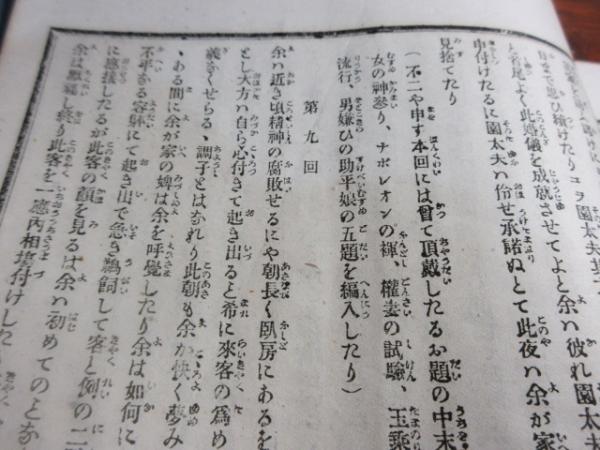 日まで思ひ續けたりコラ園太夫
と首尾よく此婚儀を成就させてよと余ハ彼れ園
申付けたるに園太夫ハ仰せ承諾ぬとて此夜ハ余が家
見捨てたり
(不二や申す本回には曾て頂戴したるお題の中末
女の神參り、ナポレオンの褌、權妻の試驗、玉乘
流行、男嫌ひの助平娘の五題を編入したり)
第九回
余ハ近き頃精神の腐敗せるにや朝長く臥房にあるを
とし大方ハ自ら心付きて起き出ると希に來客の爲め
義なくせらる、調子とはなれり此朝も余が快く夢み
ある間に余が家の婢は余を呼覺したり余は如何に
不平なる容躰にて起き出で急き鵜飼して客と例の二
に應接したるが此客の顏を見るは余ハ初めてのとな
余は點頭し終り此客を一應内相塲付けした